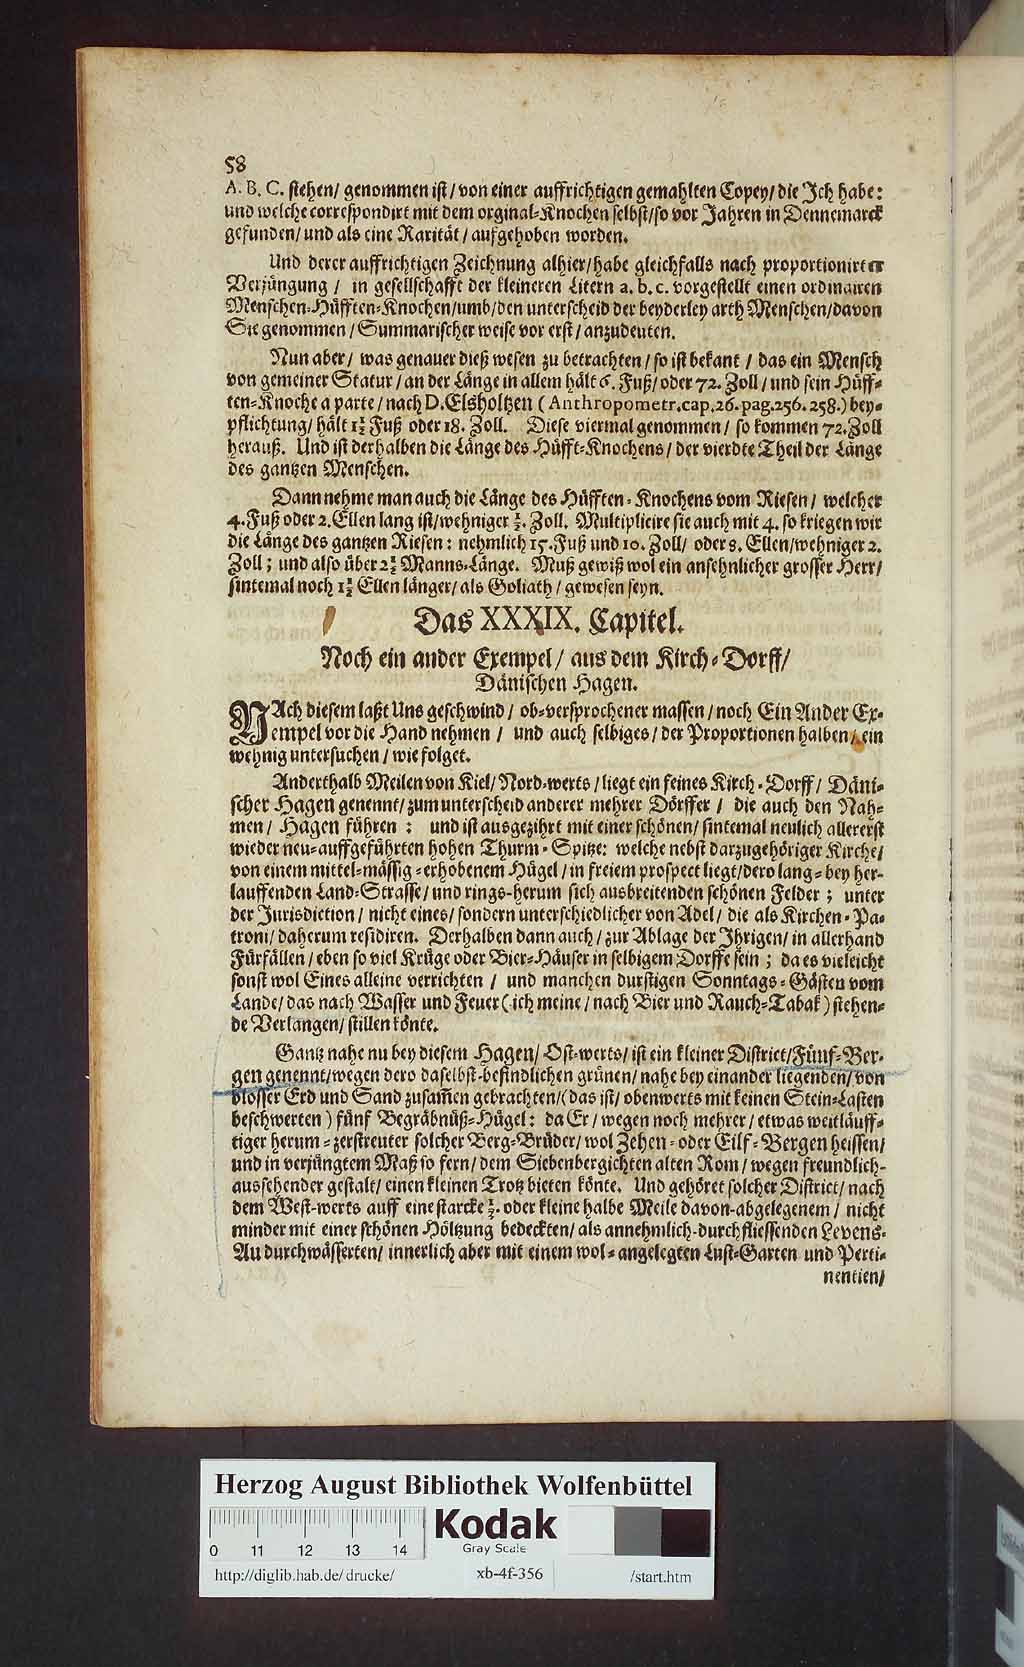 58
A. B. C. stehen/ genommen ist/ von einer auffrichtigen gemahlten Copey/ die Ich habe:
und welche correspondirt mit dem orginal-Knochen selbst/ so vor Jahren in Dennemarck
gefunden/ und als eine Rarität/ aufgehoben worden.
Und derer auffrichtigen Zeichnung alhier/ habe gleichfalls nach proportionirter
Verjüngung / in gesellschafft der kleineren Litern a. b. c. vorgestellt einen ordinairen
Menschen-Hüfften-Knochen/ umb/ den unterscheid der beyderley arth Menschen/ davon
Sie genommen / Summarischer weise vor erst/ anzudeuten.
Nun aber/ was genauer dieß wesen zu betrachten/ so ist bekant / das ein Mensch
von gemeiner Statur/ an der Länge in allem hält 6. Fuß/ oder 72. Zoll/ und sein Hüff-
ten-Knoche a parte/ nach D. Elsholtzen ( Anthropometr. cap. 26. pag. 256. 258.) bey-
pflichtung/ hält 1½ Fuß oder 18. Zoll. Diese viermal genommen/ so kommen 72. Zoll
herauß. Und ist derhalben die Länge des Hüfft-Knochens/ der vierdte Theil der Länge
des gantzen Menschen.
Dann nehme man auch die Länge des Hüfften-Knochens vom Riesen/ welcher
4. Fuß oder 2. Ellen lang ist/ wehniger ½. Zoll. Multiplicire sie auch mit 4. so kriegen wir
die Länge des gantzen Riesen: nehmlich 15. Fuß und 10. Zoll/ oder 8. Ellen/ wehniger 2.
Zoll; und also über 2½ Manns-Länge. Muß gewiß wol ein ansehnlicher grosser Herr/
sintemal noch 1½ Ellen länger/ als Goliath/ gewesen seyn.
Das XXXIX. Capitel.
Noch ein ander Exempel/ aus dem Kirch-Dorff/
Dänischen Hagen.
NAch diesem laßt Uns geschwind/ ob-versprochener massen/ noch Ein Ander Ex-
empel vor die Hand nehmen / und auch selbiges/ der Proportionen halben/ ein
wehnig untersuchen/ wie folget.
Anderthalb Meilen von Kiel/ Nord-werts/ liegt ein feines Kirch-Dorff/ Däni-
scher Hagen genennt/ zum unterscheid anderer mehrer Dörffer / die auch den Nah-
men/ Hagen führen : und ist ausgezihrt mit einer schönen/ sintemal neulich allererst
wieder neu-auffgeführten hohen Thurm-Spitze: welche nebst darzugehöriger Kirche/
von einem mittel-mässig-erhobenem Hügel/ in freiem prospect liegt/ dero lang-bey her-
lauffenden Land-Strasse/ und rings-herum sich ausbreitenden schönen Felder ; unter
der Jurisdiction/ nicht eines/ sondern unterschiedlicher von Adel/ die als Kirchen-Pa-
troni/ daherum residiren. Derhalben dann auch/ zur Ablage der Ihrigen/ in allerhand
Fürfällen/ eben so viel Krüge oder Bier-Häuser in selbigem Dorffe sein ; da es vieleicht
sonst wol Eines alleine verrichten / und manchen durstigen Sonntags-Gästen vom
Lande/ das nach Wasser und Feuer ( ich meine/ nach Bier und Rauch-Tabak ) stehen-
de Verlangen/ stillen könte.
Gantz nahe nu bey diesem Hagen/ Ost-werts/ ist ein kleiner District/ Fünf-Ber-
gen genennt/ wegen dero daselbst-befindlichen grünen/ nahe bey einander liegenden/ von
blosser Erd und Sand zusam̅en gebrachten/ (das ist/ obenwerts mit keinen Stein-Lasten
beschwerten ) fünf Begräbnüß-Hügel: da Er/ wegen noch mehrer/ etwas weitläuff-
tiger herum-zerstreuter solcher Berg-Brüder/ wol Zehen- oder Eilf-Bergen heissen/
und in verjüngtem Maß so fern/ dem Siebenbergichten alten Rom/ wegen freundlich-
aussehender gestalt/ einen kleinen Trotz bieten könte. Und gehöret solcher District/ nach
dem West-werts auff eine starcke ¼. oder kleine halbe Meile davon-abgelegenem / nicht
minder mit einer schönen Höltzung bedeckten/ als annehmlich-durchfliessenden Levens-
Au durchwässerten/ innerlich aber mit einem wol-angelegten Lust-Garten und Perti-
nentien/
Herzog August Bibliothek Wolfenbüttel
Kodak
Gray Scale
0 11 12 13 14
http://diglib.hab.de/drucke/ xb-4f-356 /start.htm